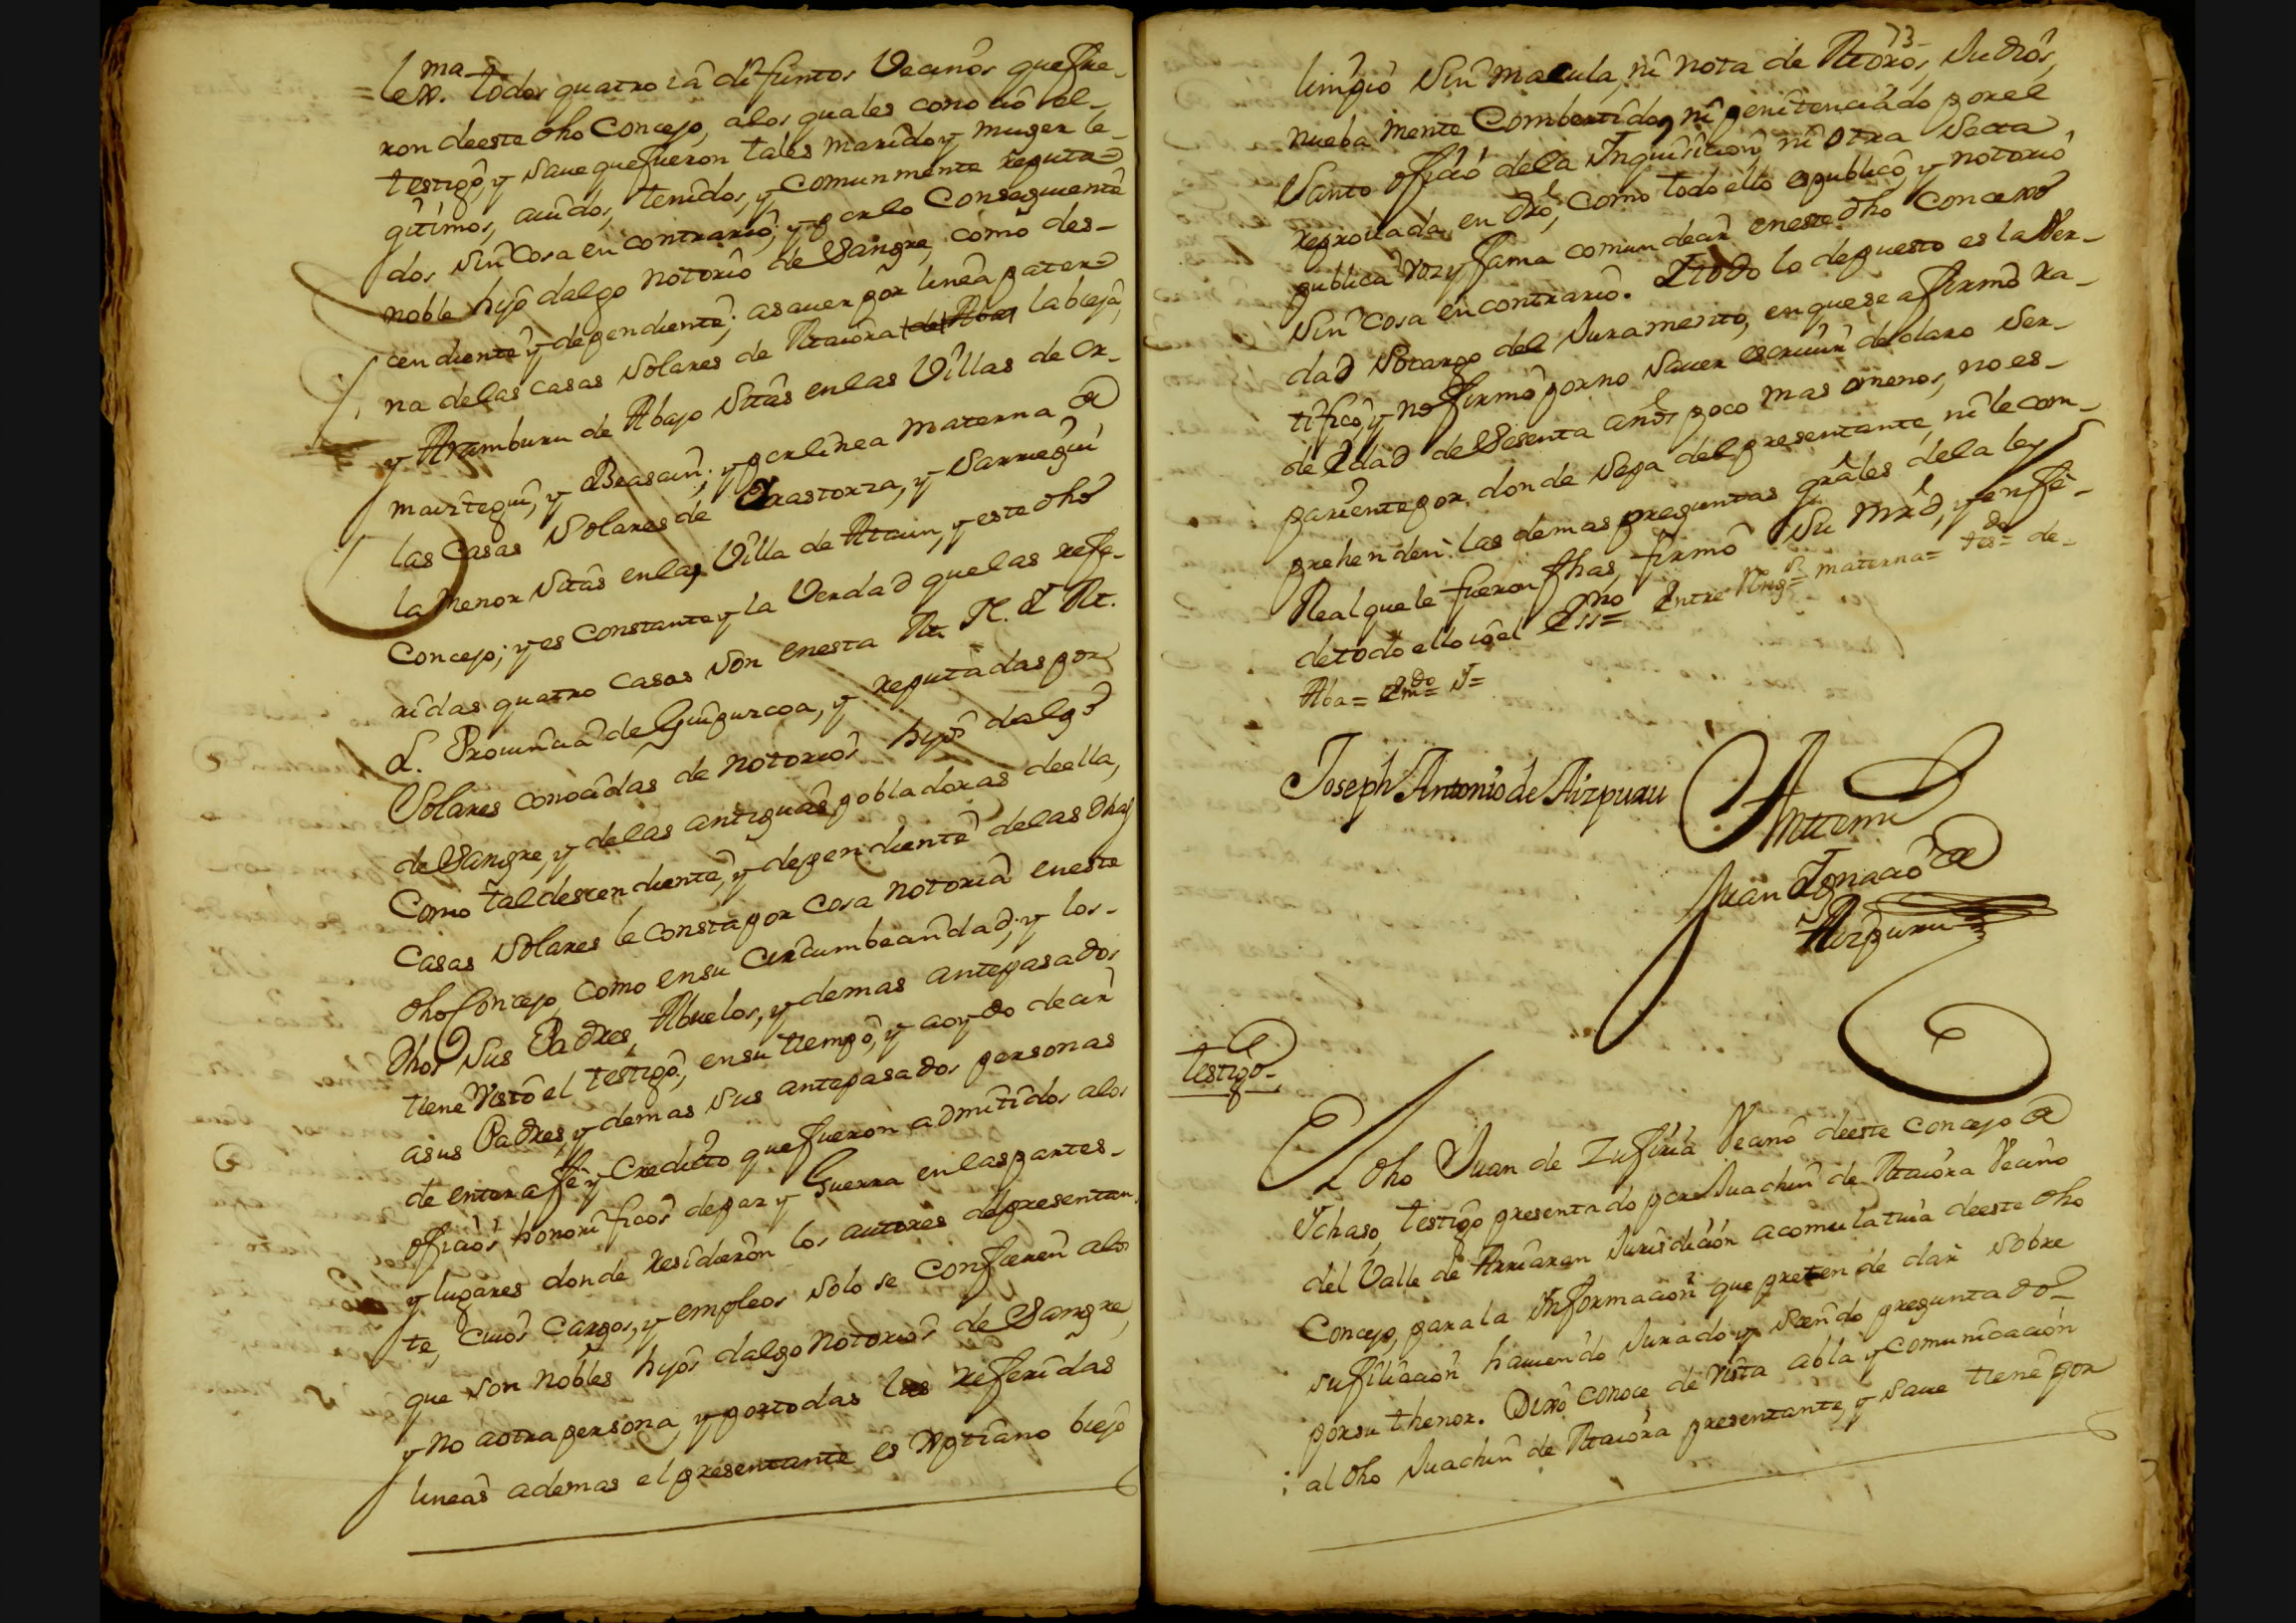 lexma. todos quatro ia difuntos Vecinos que fue-
ron deeste dho Concejo, alos quales conocio el-
testigo, y saue que fueron tales marido y muger le-
gitimos, auidos, tenidos, y comunmente reputa-
dos sin cosa en contrario; y por lo Consequiente
noble hijo dalgo notorio de Sangre, como des-
cendiente y dependiente; asauer por linea pater-
na delas casas Solares de Ataiora la bieja,
y Aramburu de Abajo sitas en las Villas de Or-
maiztegui, y Beasain; y por linea materna de
las Casas Solares de Irastorza, y Sarriegui
la menor sitas en la Villa de Ataun, y este dho
Concejo; y es Constante y la Verdad que las refe-
ridas quatro casas son en esta M. N. Y M.
L. Prouincia de Guipuzcoa, y reputadas por
Solares conocidas de notorios hijos dalgo
de Sangre, y delas antiguas pobladoras deella,
Como tal descendiente, y dependiente delas dhas
Casas Solares le consta por cosa notoria eneste
dho Concejo, como ensu circumbecindad; y los-
dhos sus Padres, Abuelos, y demas antepasados
tiene visto el testigo, ensu tiempo, y aoydo decir
asus Padres, y demas sus antepasados personas
de entera fe y Credito que fueron admitidos alos
oficios honorificos de paz y Guerra en las partes-
y lugares donde residieron los autores del presentan
te, cuios cargos, y empleos solo se confieren alos
que son nobles hijos dalgo notorios de Sangre,
y no aotra persona, y por todas las referidas
lineas ademas el presentante es Xptiano biejo
73-
limpio sin macula, ni nota de Moros, Judios,
nueba mente Combertidos, ni penitenciado por el
Santo oficio dela Inquisicion, ni otra Secta
reprouada en dro, como todo ello es publico, y notorio,
publica voz y fama comun decir eneste dho Concejo
sin cosa en contrario. Y todo lo depuesto es la Ver-
dad socargo del Juramento, en que se afirmo ra-
tifico, y no firmo por no sauer escriuir declaro ser-
de Edad de Sesenta años poco mas omenos, no es-
pariente por donde sepa del presentante, ni le com-
prehenden las demas preguntas grales dela ley
Real que le fueron fhas, firmo su mrd, y en fe-
de todo ello io el Essno= Entre Rengs= materna= tesdo= de-
Aba= Emdo= Y=
Joseph Antonio de Aizpuru
Antemi
Juan Ignacio de
Aizpuru
testigo-
El dho Juan de Zufiria Vecino deeste concejo de
Ychaso, testigo presentado por Juachin de Ataiora Vecino
del Valle de Arriaran Jurisdicion acomulatiua deeste dho
Concejo, para la Informacion que pretende dar sobre
su filiacion hauiendo Jurado y siendo preguntado-
por su thenor. Dixo conoce de vista abla y comunicacion
al dho Juachin de Ataiora presentante, y saue tiene por